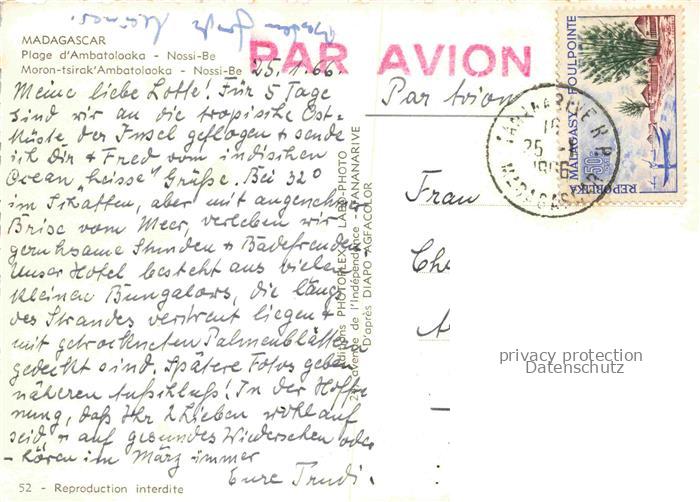 MADAGASCAR
Plage d'Ambatolaoka - Nossi-Be
Moron-tsirak'Ambatolaoka - Nossi-Be
PAR AVION
25.1.66.
Meine liebe Lotte! Für 5 Tage
sind wir an die tropische Ost-
küste der Insel geflogen & sende
ich Dir & Fred vom indischen
Ocean „heisse" Grüße. Bei 32°
im Schatten, aber mit angenehmer
Brise vom Meer, verleben wir
geruhsame Stunden & Badefreuden.
Unser Hotel besteht aus vielen
kleinen Bungalows, die längs
des Strandes verstreut liegen &
mit getrockneten Palmenblättern
gedeckt sind. Spätere Fotos geben
näheren Aufschluß! In der Hoff-
nung, daß Ihr 2 Lieben wohlauf
seid, & auf gesundes Wiedersehen oder
-hören im März immer
Eure Trudi.
52 - Reproduction interdite
Editions PHOTOFLEX - LABO-PHOTO
avenue de l'Indépendance - TANANARIVE
D'après DIAPO "AGFACOLOR
Par avion
Frau
REPOBLIKA MALAGASY
FOULPOINTE
50
TANANARIVE R.P.
16
25
MADAGASCAR
privacy protection
Datenschutz